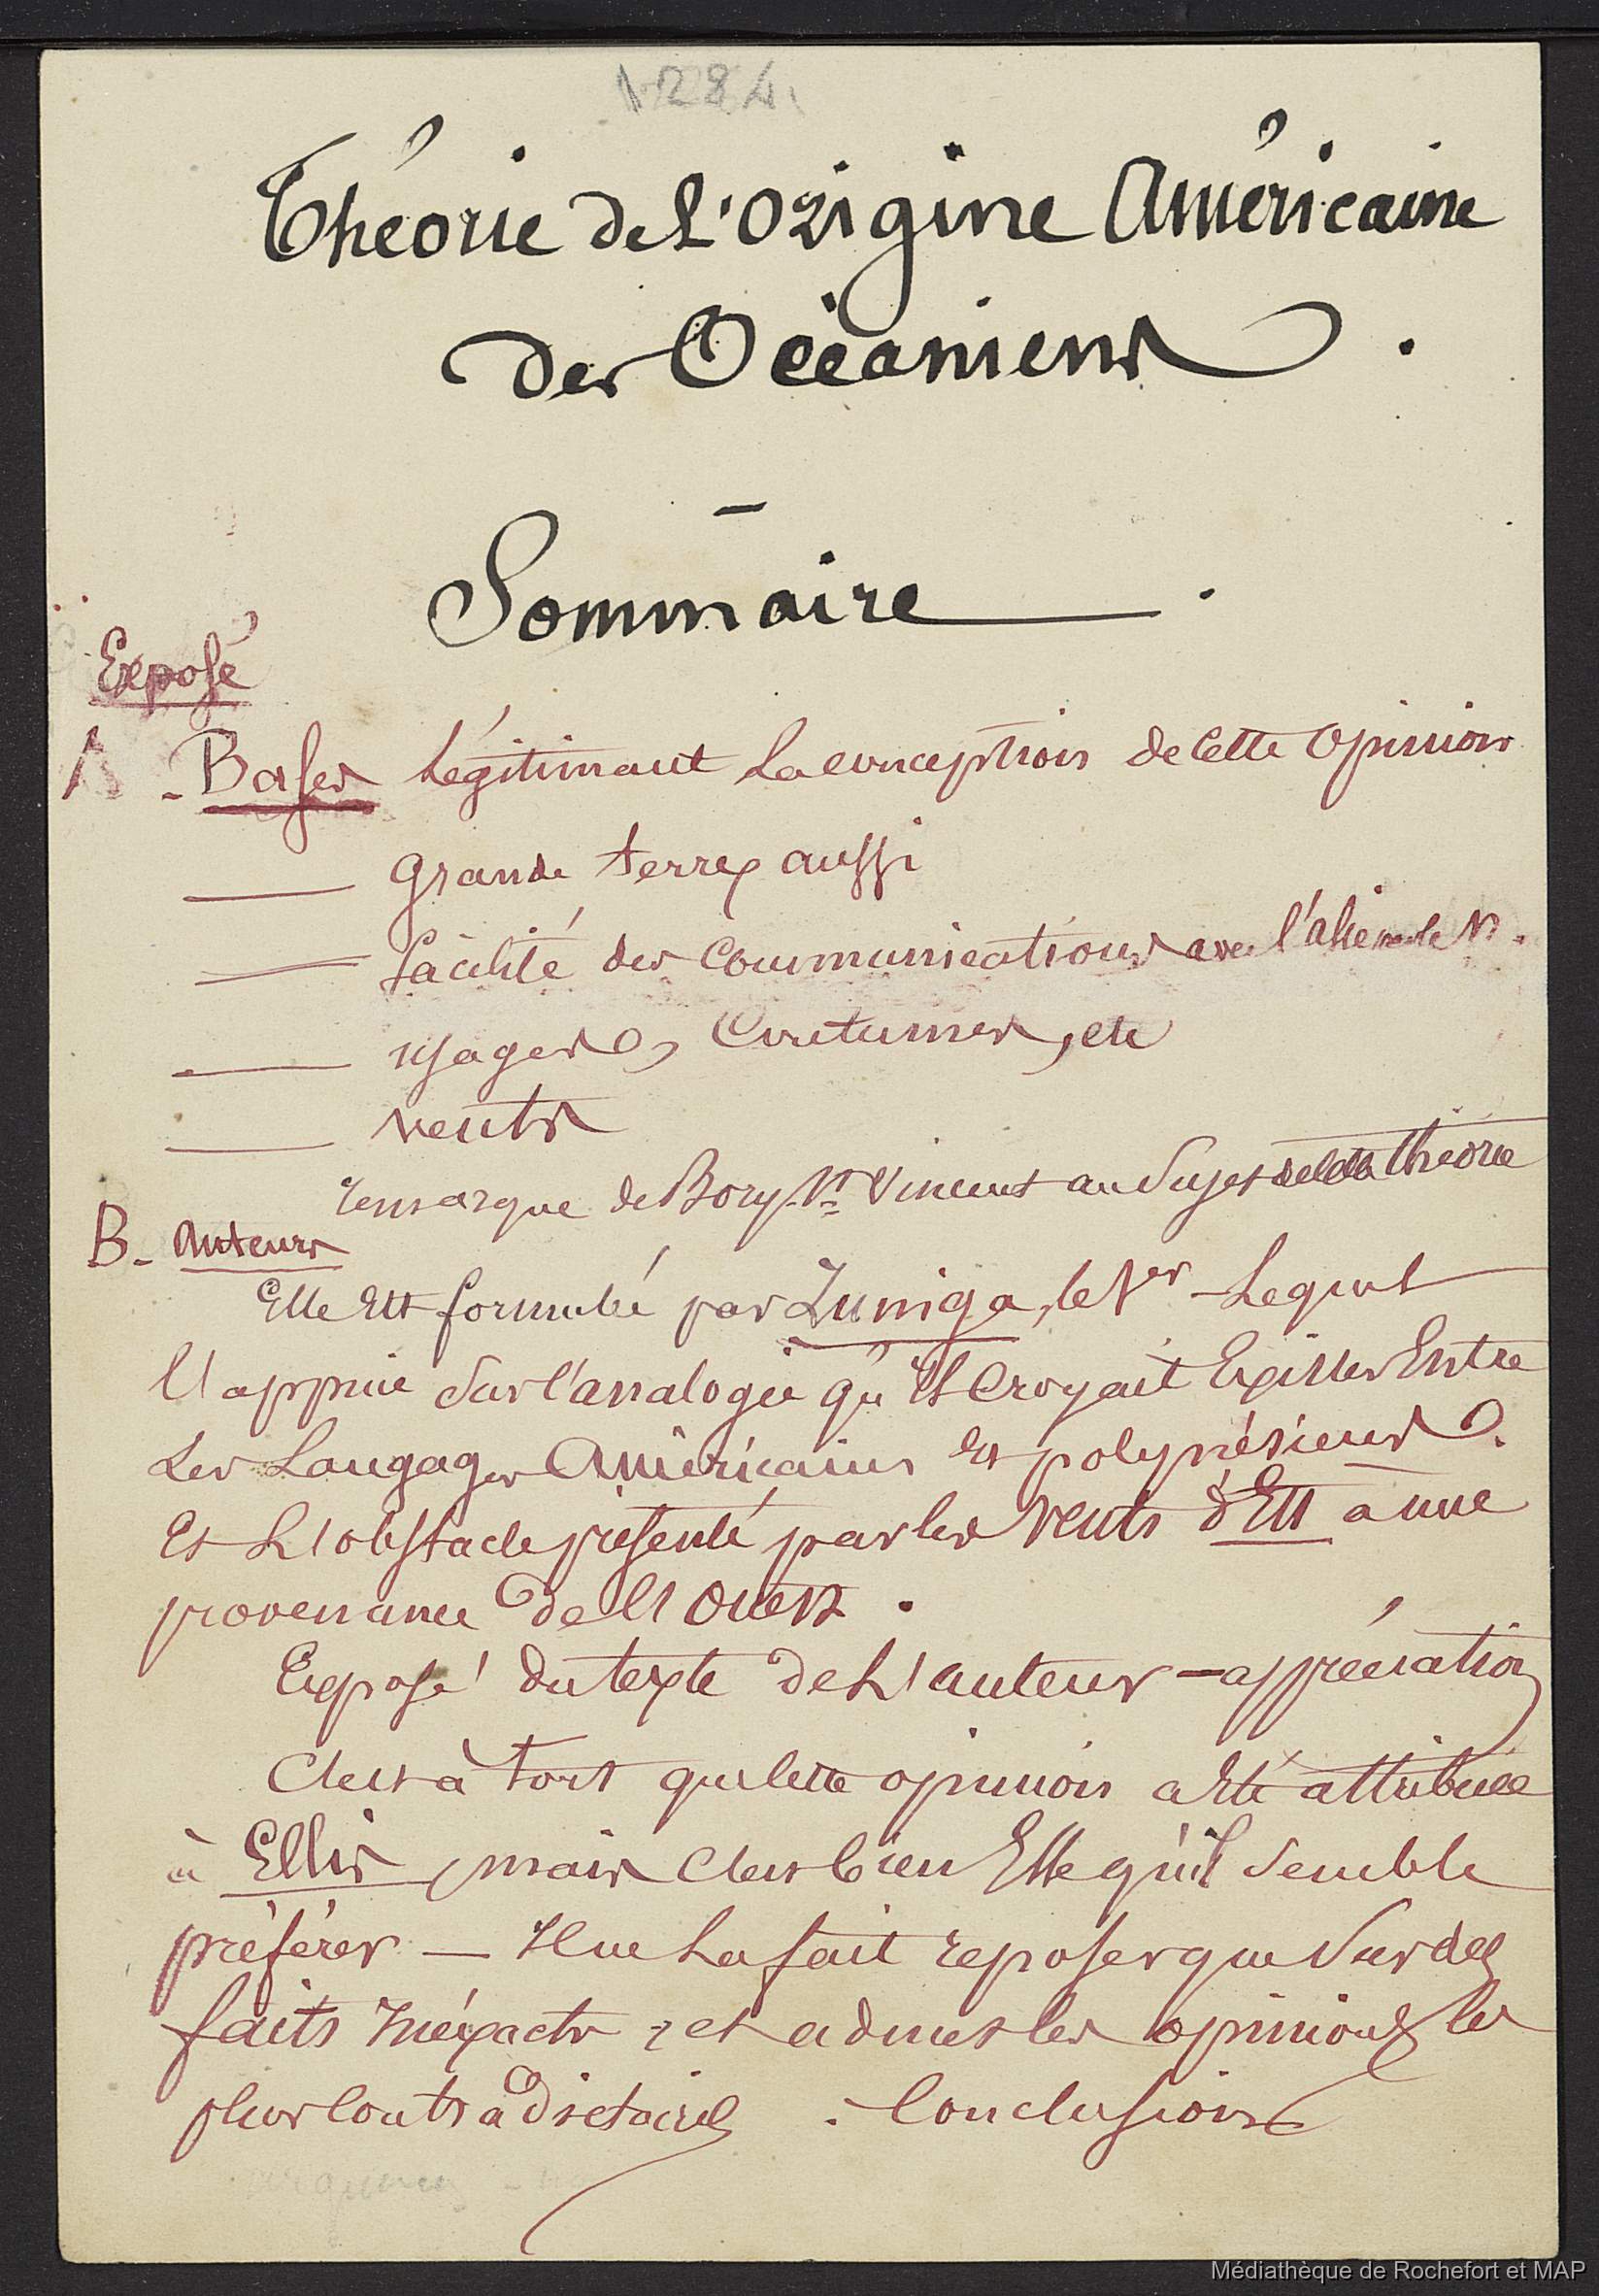 1284
Théorie de L'Origine Américaine
des Océaniens.
Sommaire.
Exposé
A - Bases légitimant la conception de cette opinion
grande terre aussi
facilité des communications avec l'asie par le N.
usages, Coutumes, etc
vents
remarque de Bory St Vincent au sujet de cette théorie
B - Auteurs
Elle est formulée par Zuniga, le 1er Lequel
l'appuie sur l'analogie qu'il croyait Exister Entre
Les Langages Américains Et polynésiens.
Et L'obstacle présenté par les vents d'Est a une
provenance de l'Ouest.
Exposé du texte de L'auteur - appréciation
C'est à tort que cette opinion a Eté attribuée
à Ellis, mais c'est bien Elle qu'il semble
préférer — Il ne La fait reposer que sur des
faits Inéxacts, et admet les opinions les
plus contradictoires. Conclusion
Médiathèque de Rochefort et MAP